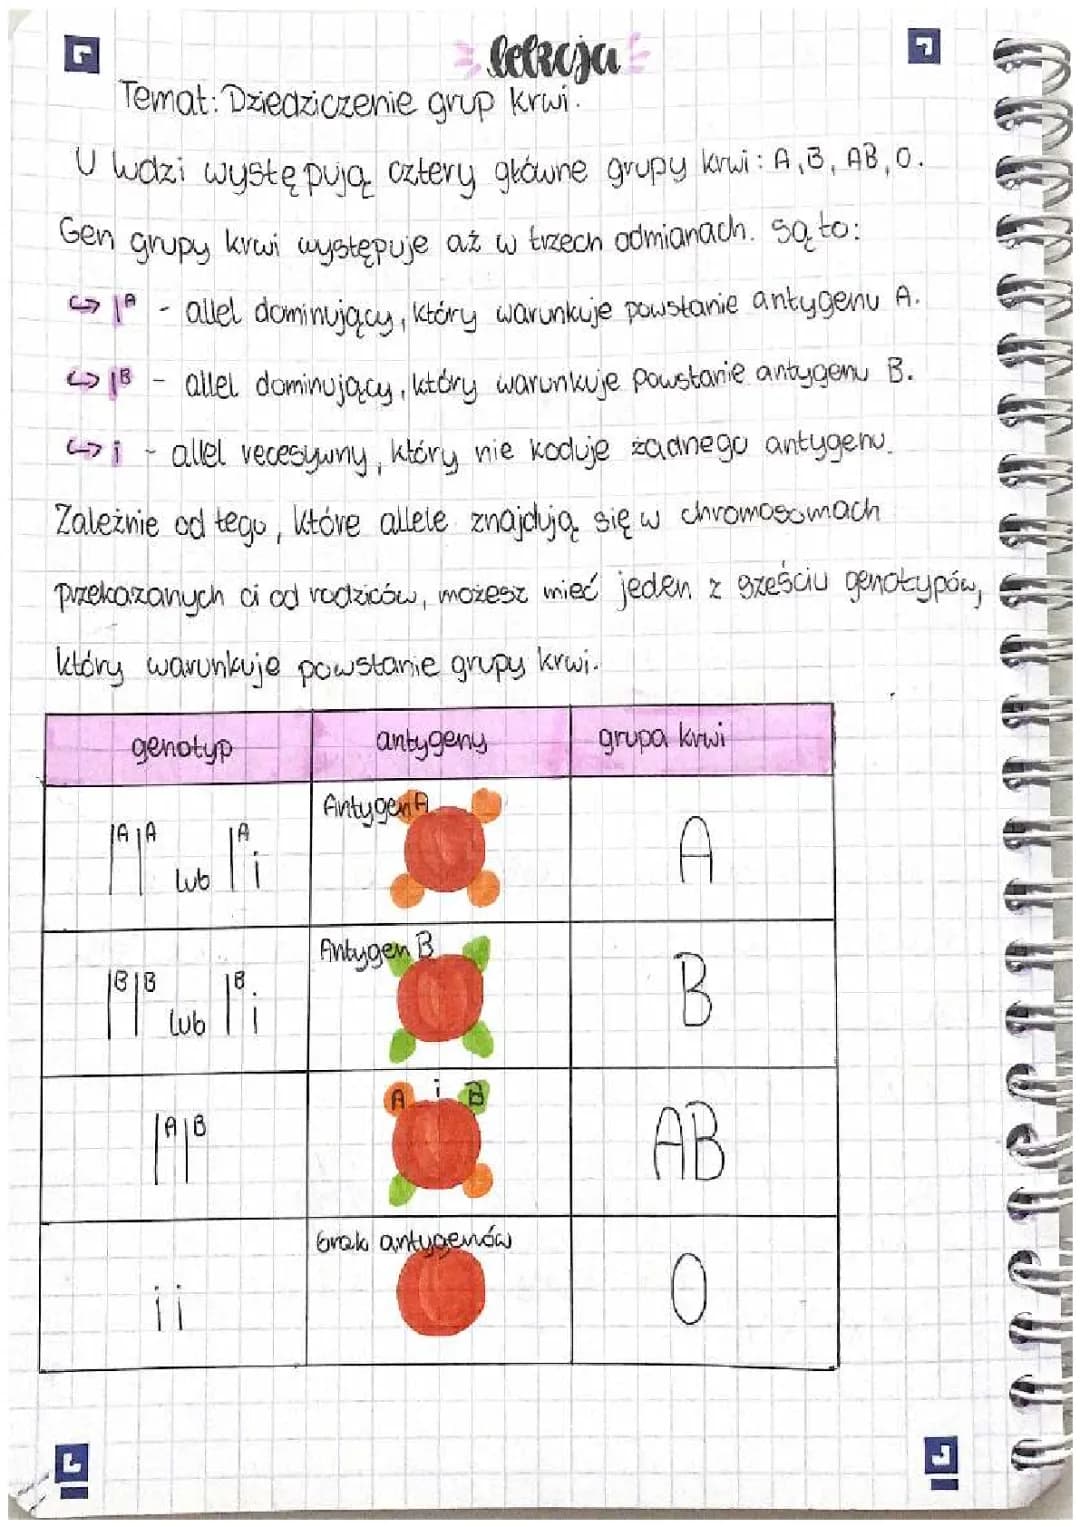 lekcja
Temat: Dziedziczenie grup krwi.
U ludzi występują cztery główne grupy krwi: A, B, AB, O.
Gen grupy krwi występuje aż w trzech odmianach. Są to:
↪ Iᴬ - allel dominujący, który warunkuje powstanie antygenu A.
↪ Iᴮ - allel dominujący, który warunkuje powstanie antygenu B.
↪ i - allel recesywny, który nie koduje żadnego antygenu.
Zależnie od tego, które allele znajdują się w chromosomach
przekazanych ci od rodziców, możesz mieć jeden z sześciu genotypów,
który warunkuje powstanie grupy krwi.
genotyp antygeny grupa krwi
Antygen A
IᴬIᴬ lub Iᴬi A
Antygen B
IᴮIᴮ lub Iᴮi B
A i B
IᴬIᴮ AB
brak antygenów
ii O